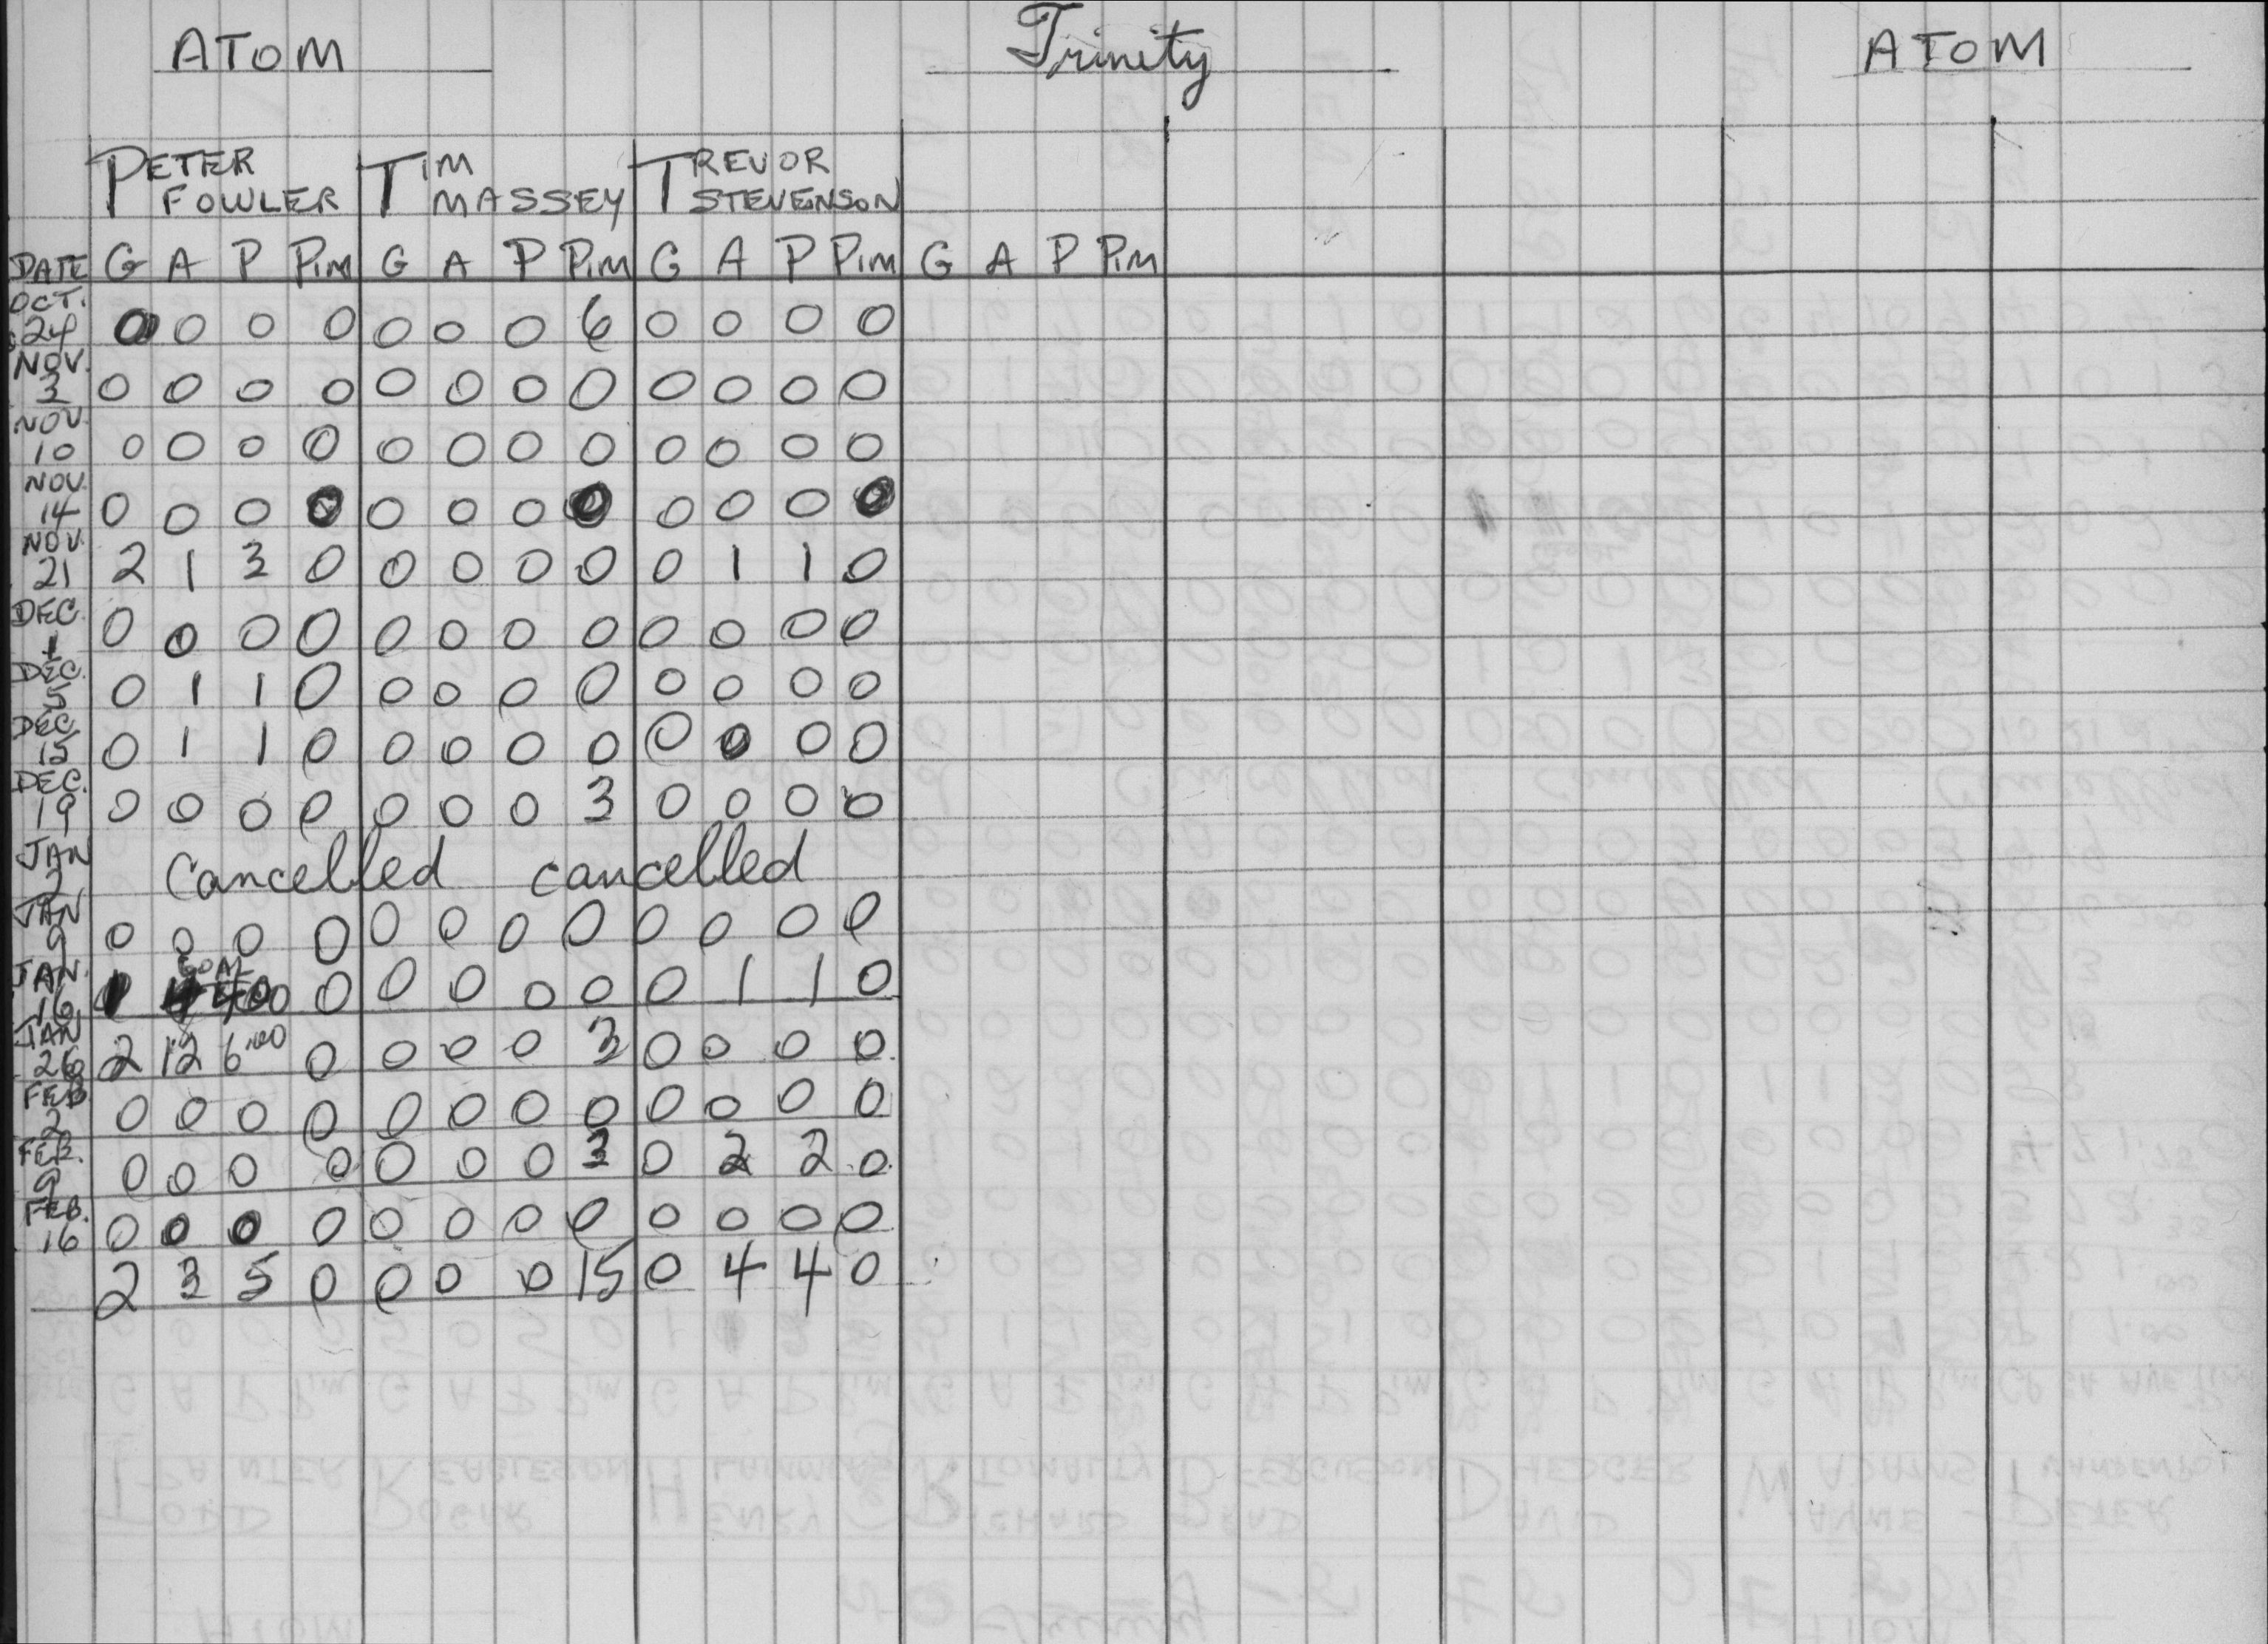 ATOM Trinity ATOM
PETER FOWLER TIM MASSEY TREVOR STEVENSON
DATE G A P PiM G A P PiM G A P PiM G A P PiM
OCT. 24 0 0 0 0 0 0 0 6 0 0 0 0
NOV. 3 0 0 0 0 0 0 0 0 0 0 0 0
NOV. 10 0 0 0 0 0 0 0 0 0 0 0 0
NOV. 14 0 0 0 0 0 0 0 0 0 0 0 0
NOV. 21 2 1 3 0 0 0 0 0 0 1 1 0
DEC. 1 0 0 0 0 0 0 0 0 0 0 0 0
DEC. 5 0 1 1 0 0 0 0 0 0 0 0 0
DEC. 15 0 1 1 0 0 0 0 0 0 0 0 0
DEC. 19 0 0 0 0 0 0 0 3 0 0 0 0
JAN 2 Cancelled cancelled
JAN 9 0 0 0 0 0 0 0 0 0 0 0 0
JAN. 16 1 4 GOAL 0 0 0 0 0 0 1 1 0
JAN 26 2 12 6.00 0 0 0 0 3 0 0 0 0
FEB 2 0 0 0 0 0 0 0 0 0 0 0 0
FEB. 9 0 0 0 0 0 0 0 3 0 2 2 0
FEB. 16 0 0 0 0 0 0 0 0 0 0 0 0
2 3 5 0 0 0 0 15 0 4 4 0